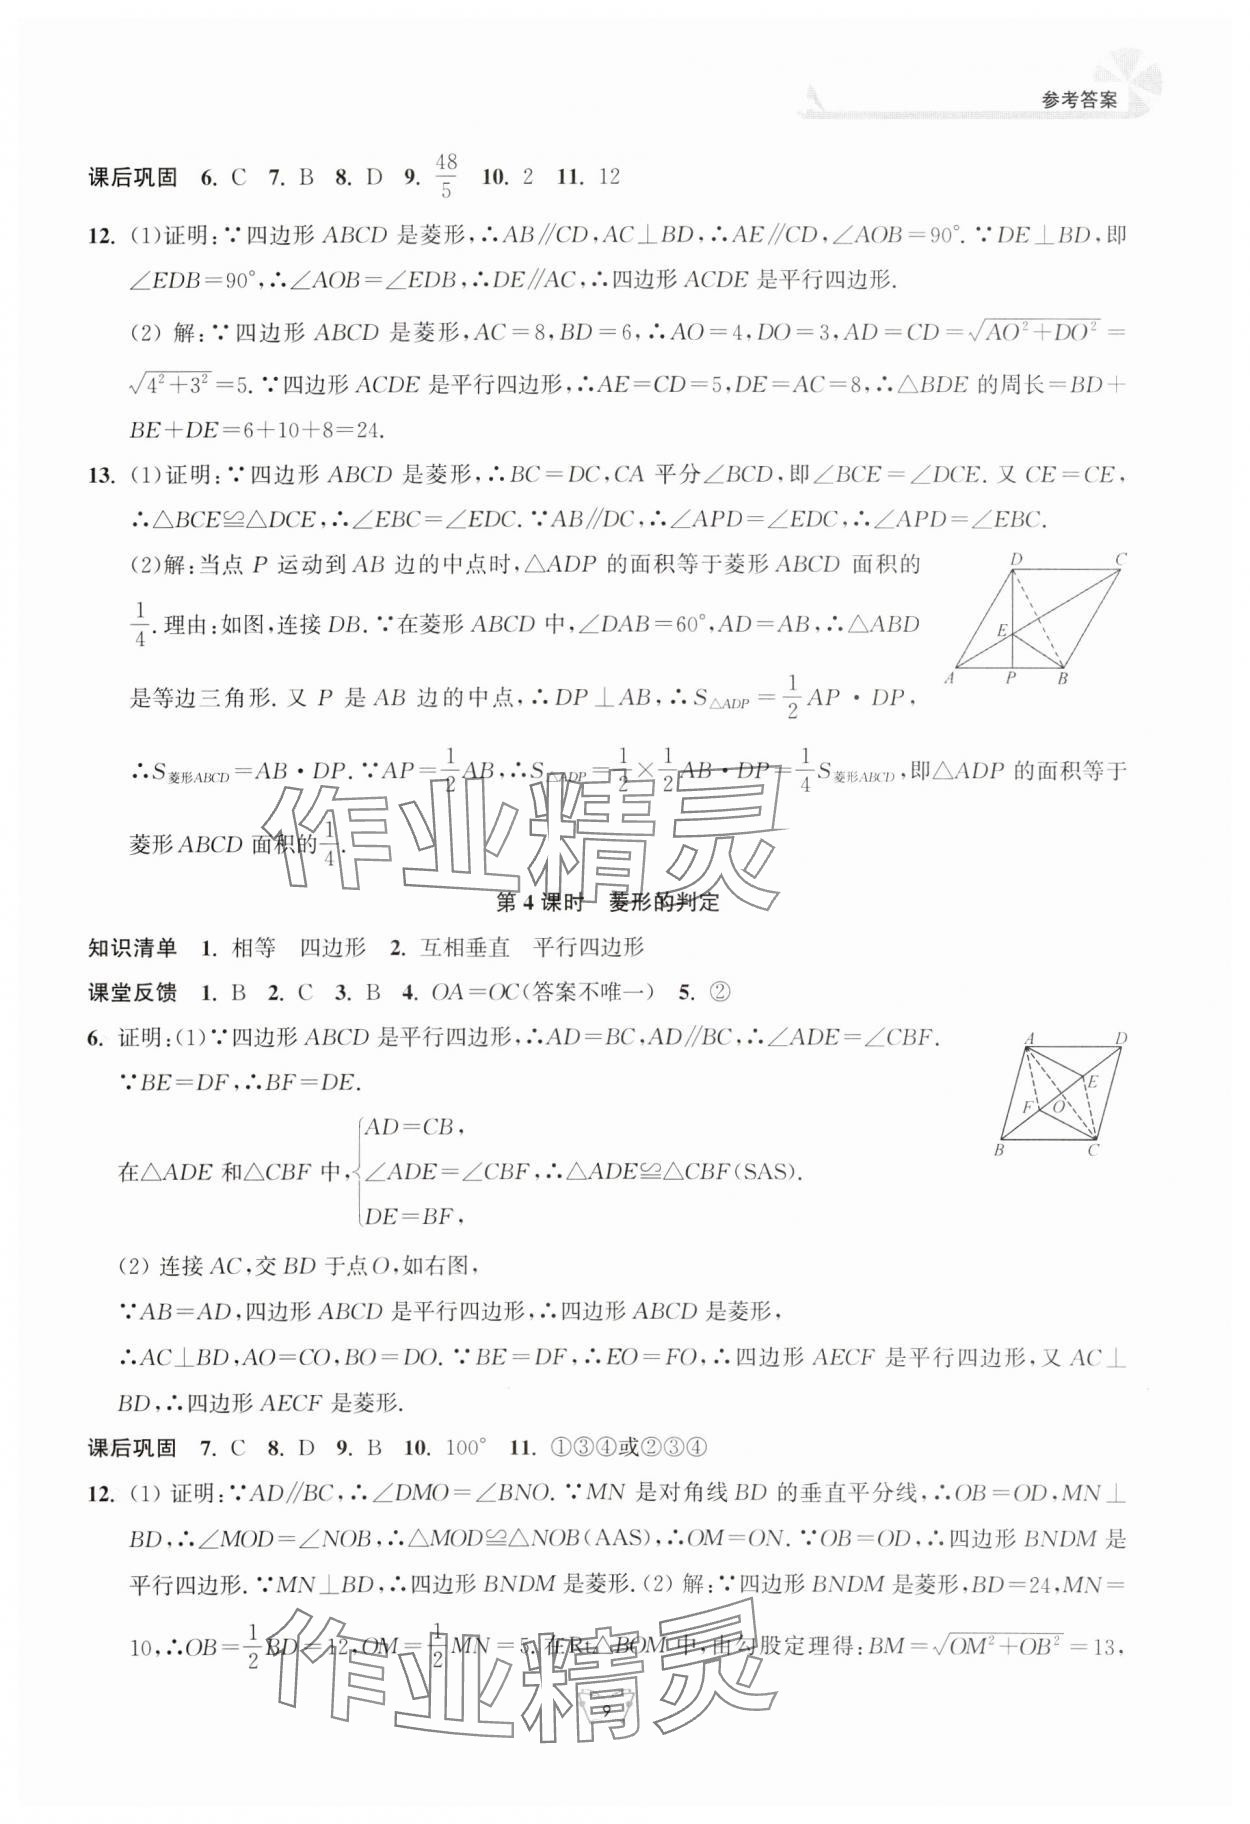 参考答案
课后巩固 6. C 7. B 8. D 9. 48/5 10. 2 11. 12
12. (1)证明:∵四边形 ABCD 是菱形,∴AB∥CD,AC⊥BD,∴AE∥CD,∠AOB=90°.∵DE⊥BD,即
∠EDB=90°,∴∠AOB=∠EDB,∴DE∥AC,∴四边形 ACDE 是平行四边形.
(2) 解:∵四边形 ABCD 是菱形,AC=8,BD=6,∴AO=4,DO=3,AD=CD=√(AO²+DO²)=
√(4²+3²)=5.∵四边形 ACDE 是平行四边形,∴AE=CD=5,DE=AC=8,∴△BDE 的周长=BD+
BE+DE=6+10+8=24.
13. (1)证明:∵四边形 ABCD 是菱形,∴BC=DC,CA 平分∠BCD,即∠BCE=∠DCE.又 CE=CE,
∴△BCE≌△DCE,∴∠EBC=∠EDC.∵AB∥DC,∴∠APD=∠EDC,∴∠APD=∠EBC.
(2)解:当点 P 运动到 AB 边的中点时,△ADP 的面积等于菱形 ABCD 面积的
1/4.理由:如图,连接 DB.∵在菱形 ABCD 中,∠DAB=60°,AD=AB,∴△ABD
是等边三角形.又 P 是 AB 边的中点,∴DP⊥AB,∴S△ADP=1/2 AP·DP,
D C
E
A P B
∴S菱形ABCD=AB·DP.∵AP=1/2 AB,∴S△ADP=1/2×1/2 AB·DP=1/4 S菱形ABCD,即△ADP 的面积等于
菱形 ABCD 面积的 1/4.
作业精灵
第 4 课时 菱形的判定
知识清单 1. 相等 四边形 2. 互相垂直 平行四边形
课堂反馈 1. B 2. C 3. B 4. OA=OC(答案不唯一) 5. ②
6. 证明:(1)∵四边形 ABCD 是平行四边形,∴AD=BC,AD∥BC,∴∠ADE=∠CBF.
∵BE=DF,∴BF=DE.
A D
E
F O
B C
AD=CB,
在△ADE 和△CBF 中,{∠ADE=∠CBF,∴△ADE≌△CBF(SAS).
DE=BF,
(2) 连接 AC,交 BD 于点 O,如右图,
∵AB=AD,四边形 ABCD 是平行四边形,∴四边形 ABCD 是菱形,
∴AC⊥BD,AO=CO,BO=DO.∵BE=DF,∴EO=FO,∴四边形 AECF 是平行四边形,又 AC⊥
BD,∴四边形 AECF 是菱形.
课后巩固 7. C 8. D 9. B 10. 100° 11. ①③④或②③④
12. (1) 证明:∵AD∥BC,∴∠DMO=∠BNO.∵MN 是对角线 BD 的垂直平分线,∴OB=OD,MN⊥
BD,∴∠MOD=∠NOB,∴△MOD≌△NOB(AAS),∴OM=ON.∵OB=OD,∴四边形 BNDM 是
平行四边形.∵MN⊥BD,∴四边形 BNDM 是菱形.(2) 解:∵四边形 BNDM 是菱形,BD=24,MN=
10,∴OB=1/2 BD=12,OM=1/2 MN=5.在Rt△BOM 中,由勾股定理得:BM=√(OM²+OB²)=13,
作业精灵
9